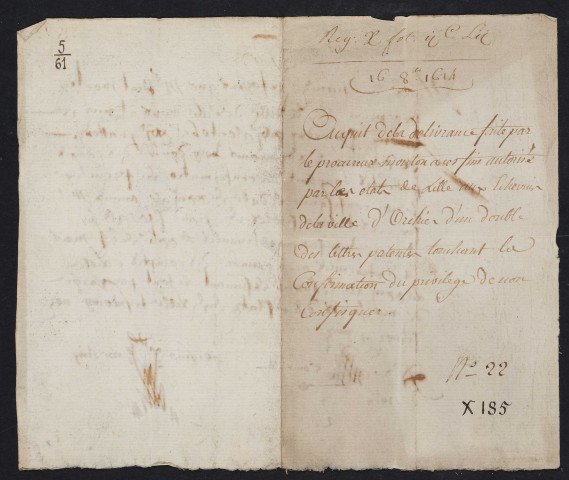 5
61
Reg. X fol. ijc Lix
16 8bre 1614
Acquit de la delivrance faite par
le procureur sindicq a ces fins autorisé
par les etats de Lille aux Echevins
de la ville d'Orchies d'un double
des lettres patentes touchant la
Confirmation du privilege de non
Confisquer
No 22
X 185